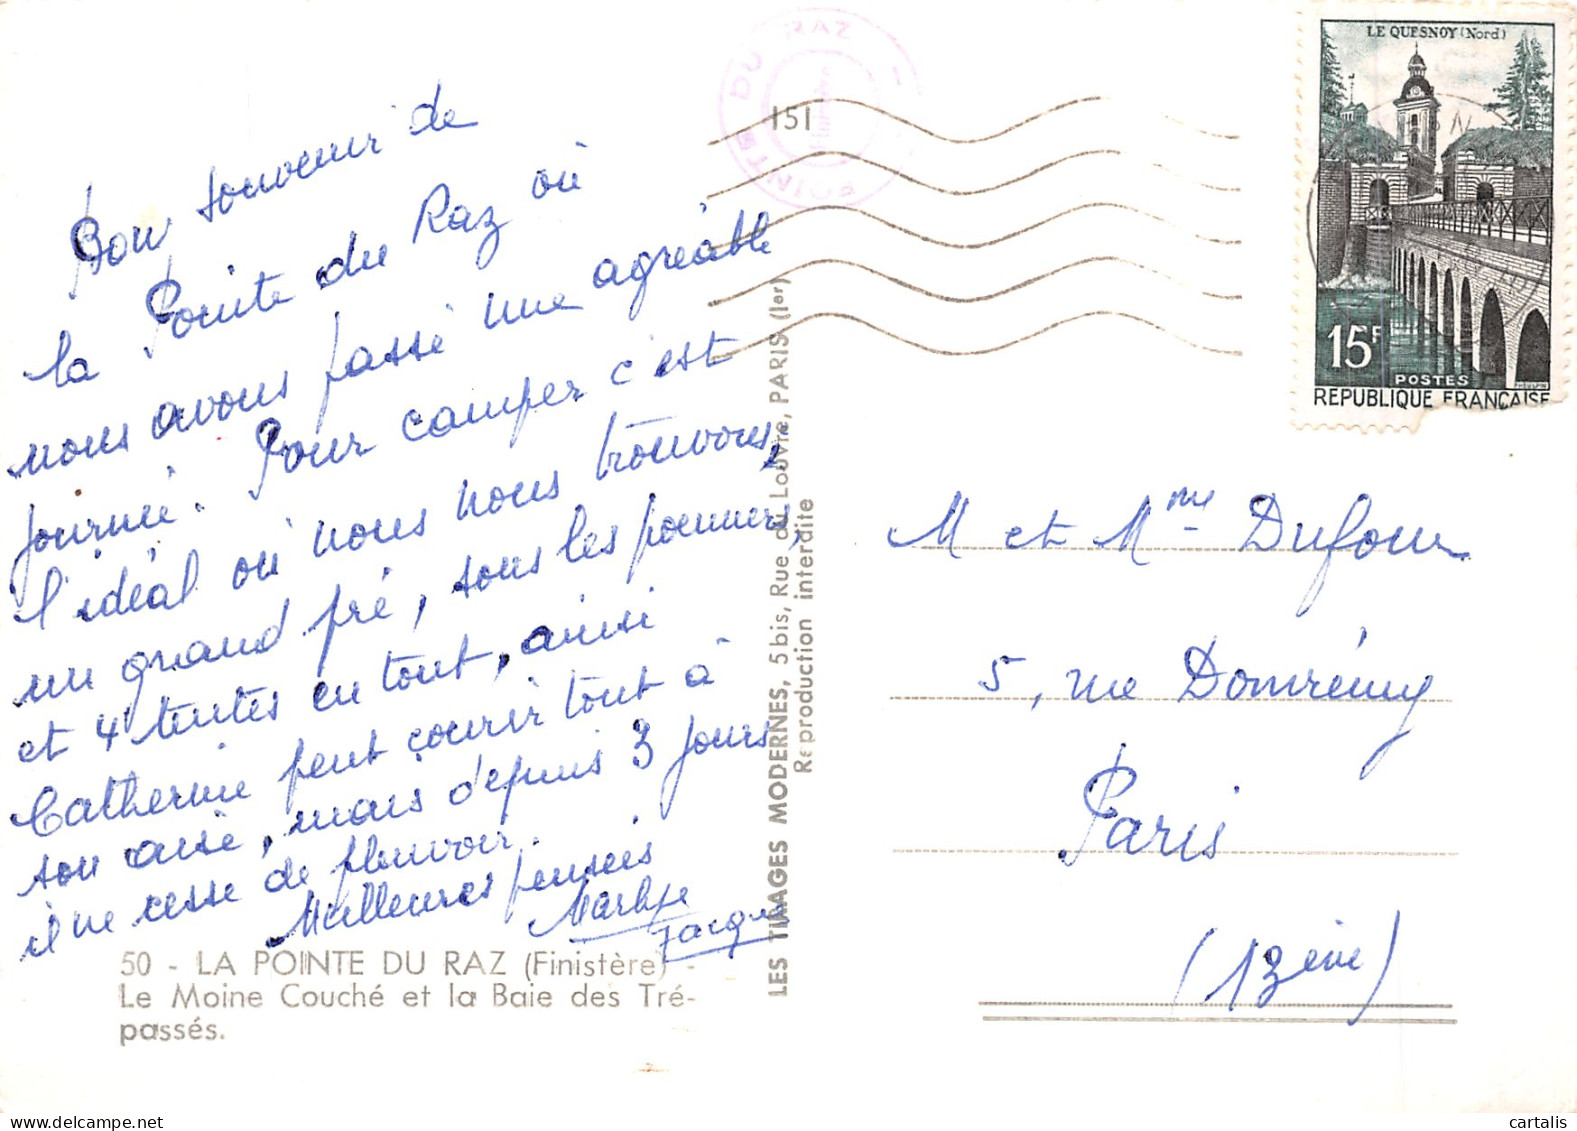 Bon souvenir de
la Pointe du Raz où
nous avons passé une agréable
journée. Pour camper c'est
l'idéal où nous nous trouvons,
un grand pré, sous les pommiers,
et 4 tentes en tout, ainsi
Catherine peut courir tout à
son aise, mais depuis 3 jours
il ne cesse de pleuvoir.
Meilleures pensées
Jacques
50 - LA POINTE DU RAZ (Finistère) -
Le Moine Couché et la Baie des Tré-
passés.
LES TIRAGES MODERNES, 5 bis, Rue du Louvre, PARIS (Ier)
Reproduction interdite
POINTE DU RAZ
151
LE QUESNOY (Nord)
15F
POSTES
REPUBLIQUE FRANÇAISE
M et Mme Dufour
5, rue Domrémy
Paris
(13ème)
cartalis